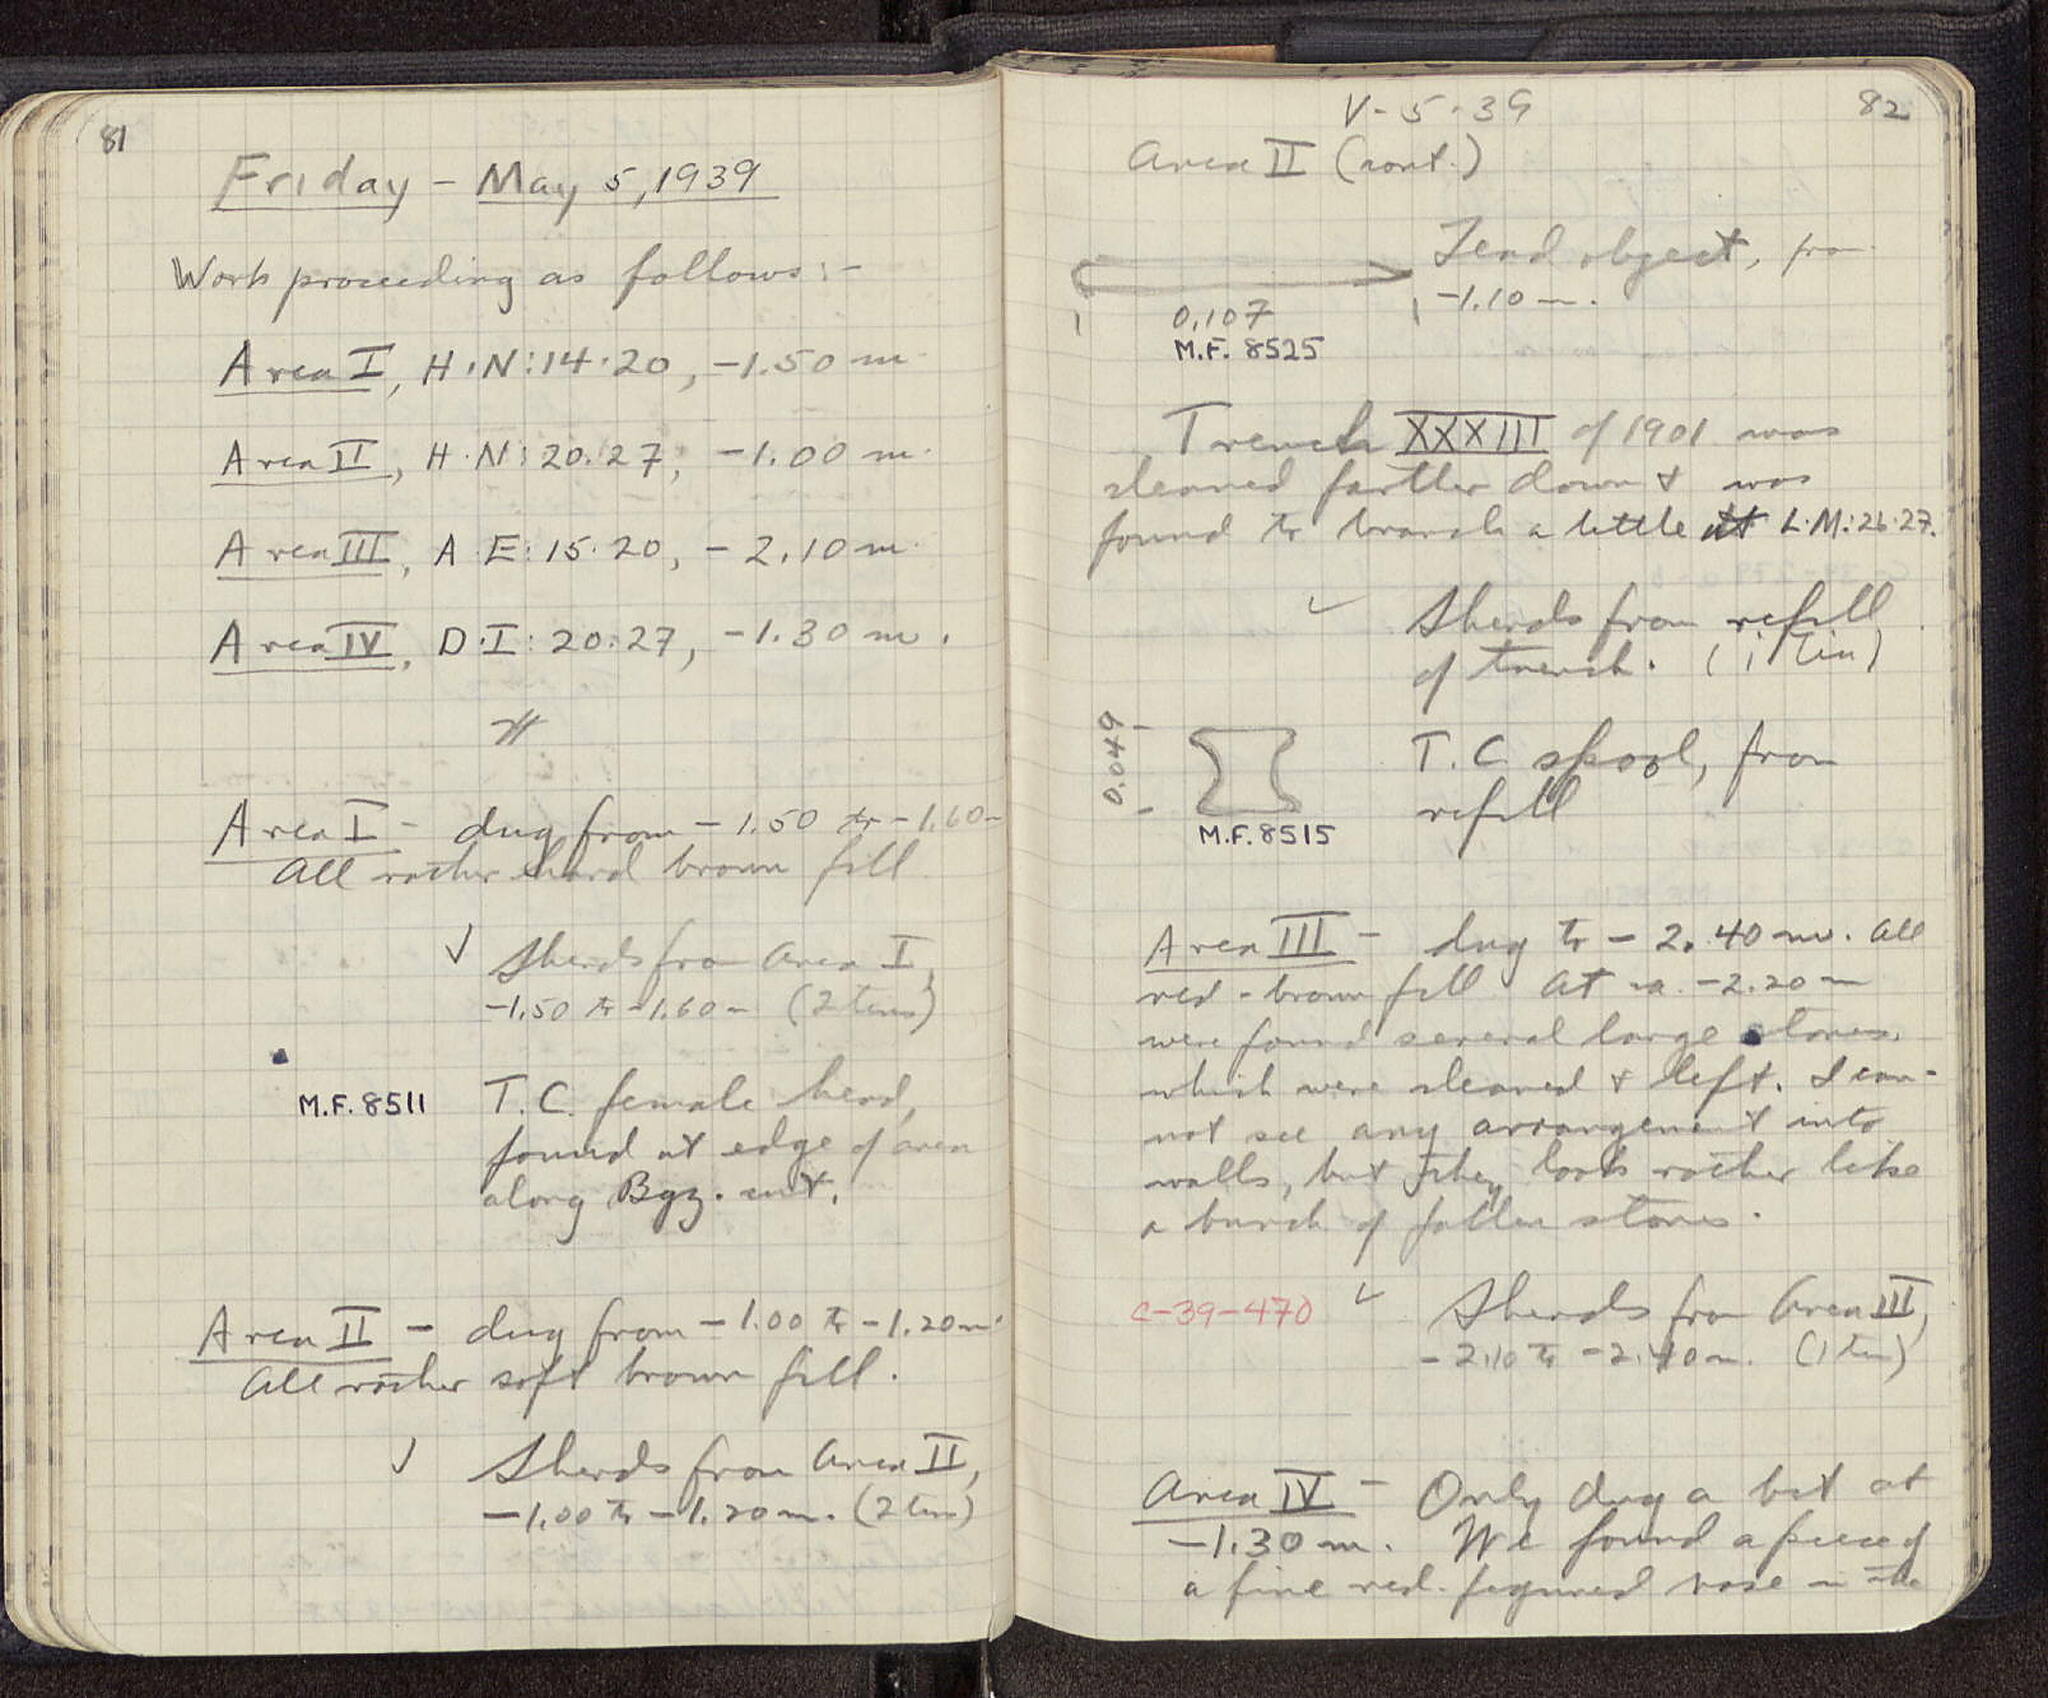 81
Friday - May 5, 1939
Work proceeding as follows:-
Area I, H·N:14·20, -1.50 m.
Area II, H·N:20·27, -1.00 m.
Area III, A·E:15·20, -2.10 m.
Area IV, D·I:20·27, -1.30 m.
Area I - dug from -1.50 to -1.60 m
All rather hard brown fill.
✓ Sherds from Area I,
-1.50 to -1.60 m (2 tins)
M.F. 8511 T.C. female head,
found at edge of area
along Byz. wall.
Area II - dug from -1.00 to -1.20 m.
All rather soft brown fill.
✓ Sherds from Area II,
-1.00 to -1.20 m. (2 tins)
V-5-39
82
Area II (cont.)
Lead object, from
-1.10 m.
0.107
M.F. 8525
Trench XXXIII of 1901 was
cleaned farther down & was
found to branch a little at L·M:26·27.
✓ Sherds from refill
of trench. (1 tin)
0.049
T.C. spool, from
refill
M.F. 8515
Area III - dug to -2.40 m. All
red-brown fill. At ca. -2.20 m
were found several large stones,
which were cleaned & left. I can-
not see any arrangement into
walls, but they look rather like
a bunch of fallen stones.
C-39-470 ✓ Sherds from Area III,
-2.10 to -2.40 m. (1 tin)
Area IV - Only dug a bit at
-1.30 m. We found a piece of
a fine red-figured vase in the